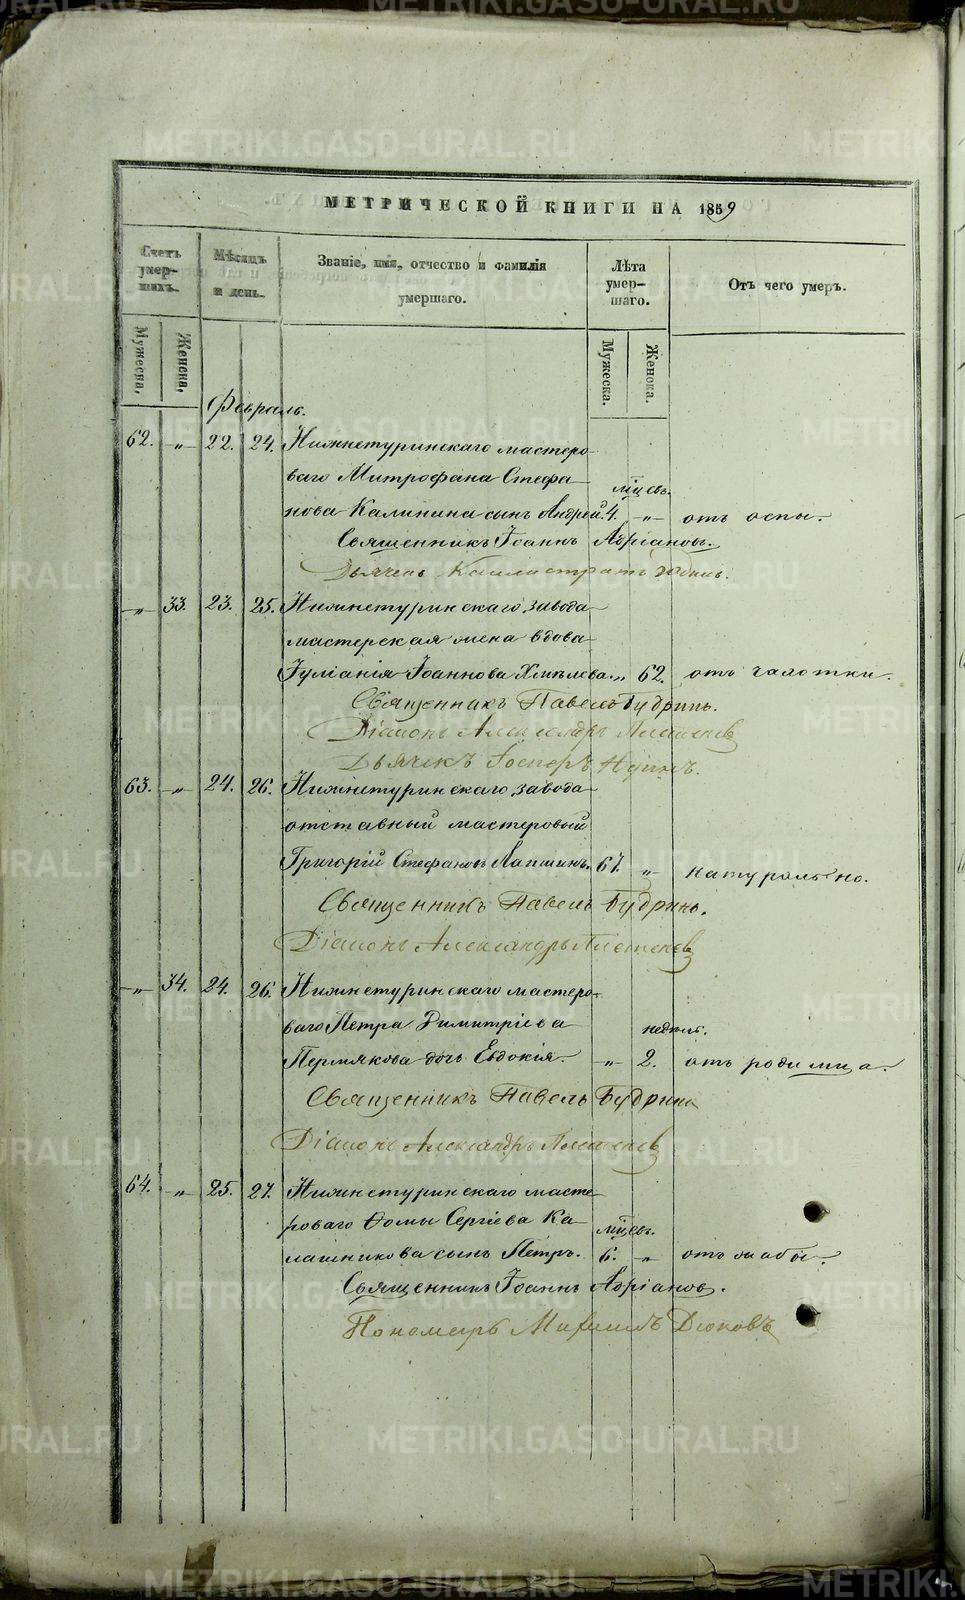 МЕТРИЧЕСКОЙ КНИГИ НА 1859
Счетъ умер-шихъ. Мѣсяцъ и день. Званіе, имя, отчество и фамилія умершаго. Лѣта умер-шаго. Отъ чего умеръ.
Мужеска. Женска. Мужеска. Женска.
Февраль.
62. „ 22. 24. Нижнетуринскаго мастеро-
ваго Митрофана Стефа-
мцевъ.
нова Калинина сынъ Андрей. 4. „ отъ оспы.
Священникъ Іоаннъ Адріановъ.
Дьячекъ Каллистратъ
„ 33. 23. 25. Нижнетуринскаго завода
мастерская жена вдова
Іуліанія Іоаннова Хмѣлева. „ 62. отъ чахотки.
Священникъ Павелъ Будринъ.
Діаконъ Александръ Плетеневъ
Дьячекъ
63. „ 24. 26. Нижнетуринскаго завода
отставный мастеровый
Григорій Стефановъ Лапшинъ. 67. „ натурально.
Священникъ Павелъ Будринъ.
Діаконъ Александръ Плетеневъ
„ 34. 24. 26. Нижнетуринскаго мастеро-
ваго Петра Димитріева
недѣль.
Пермякова дочь Евдокія. „ 2. отъ родимца.
Священникъ Павелъ Будринъ
Діаконъ Александръ Плетеневъ
64. „ 25. 27. Нижнетуринскаго масте-
роваго Ѳомы Сергіева Ка-
мцевъ.
лашникова сынъ Петръ. 6. „ отъ
Священникъ Іоаннъ Адріановъ.
Пономарь Михаилъ Дюковъ
METRIKI.GASO-URAL.RU